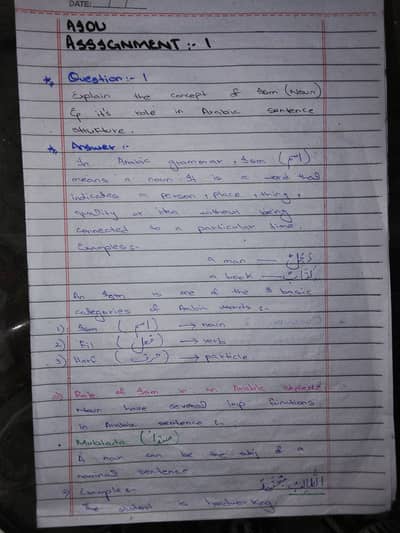 DATE:
AIOU
ASSIGNMENT :- 1
Question:- 1
Explain the concept of Ism (Noun)
& it's role in Arabic sentence
structure.
Answer :-
In Arabic grammar, Ism (اسم)
means a noun. It is a word that
indicates a person, place, thing,
quality or idea without being
connected to a particular time.
Examples:-
a man — رَجُلٌ
a book — كِتَابٌ
An Ism is one of the 3 basic
categories of Arabic words:-
1) Ism (اسم) → noun
2) Fi'l (فعل) → verb
3) Harf (حرف) → particle
Role of Ism in an Arabic
Noun have several imp functions
in Arabic sentence:-
Mubtada (مبتدا)
A noun can be the subj of a
nominal sentence
Example:- الطَّالِبُ
The student is hardworking.